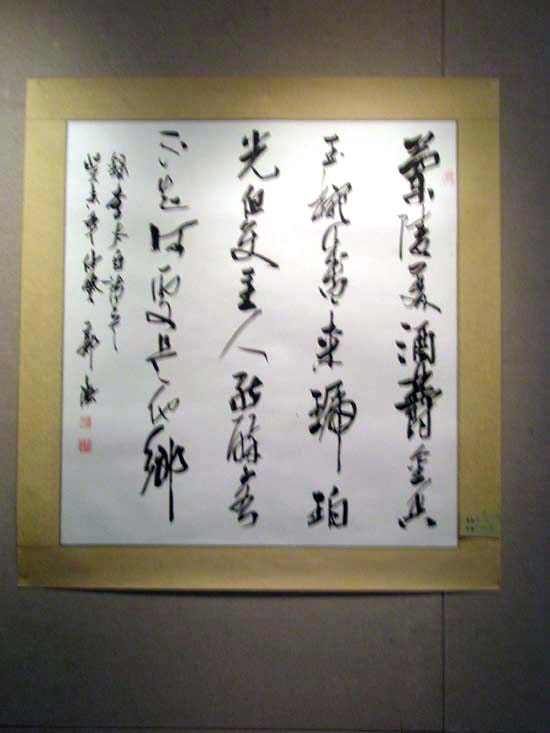 蘭陵美酒鬱金香
玉椀盛来琥珀
光但使主人能醉客
不知何處是他鄉
李太白詩
癸未年